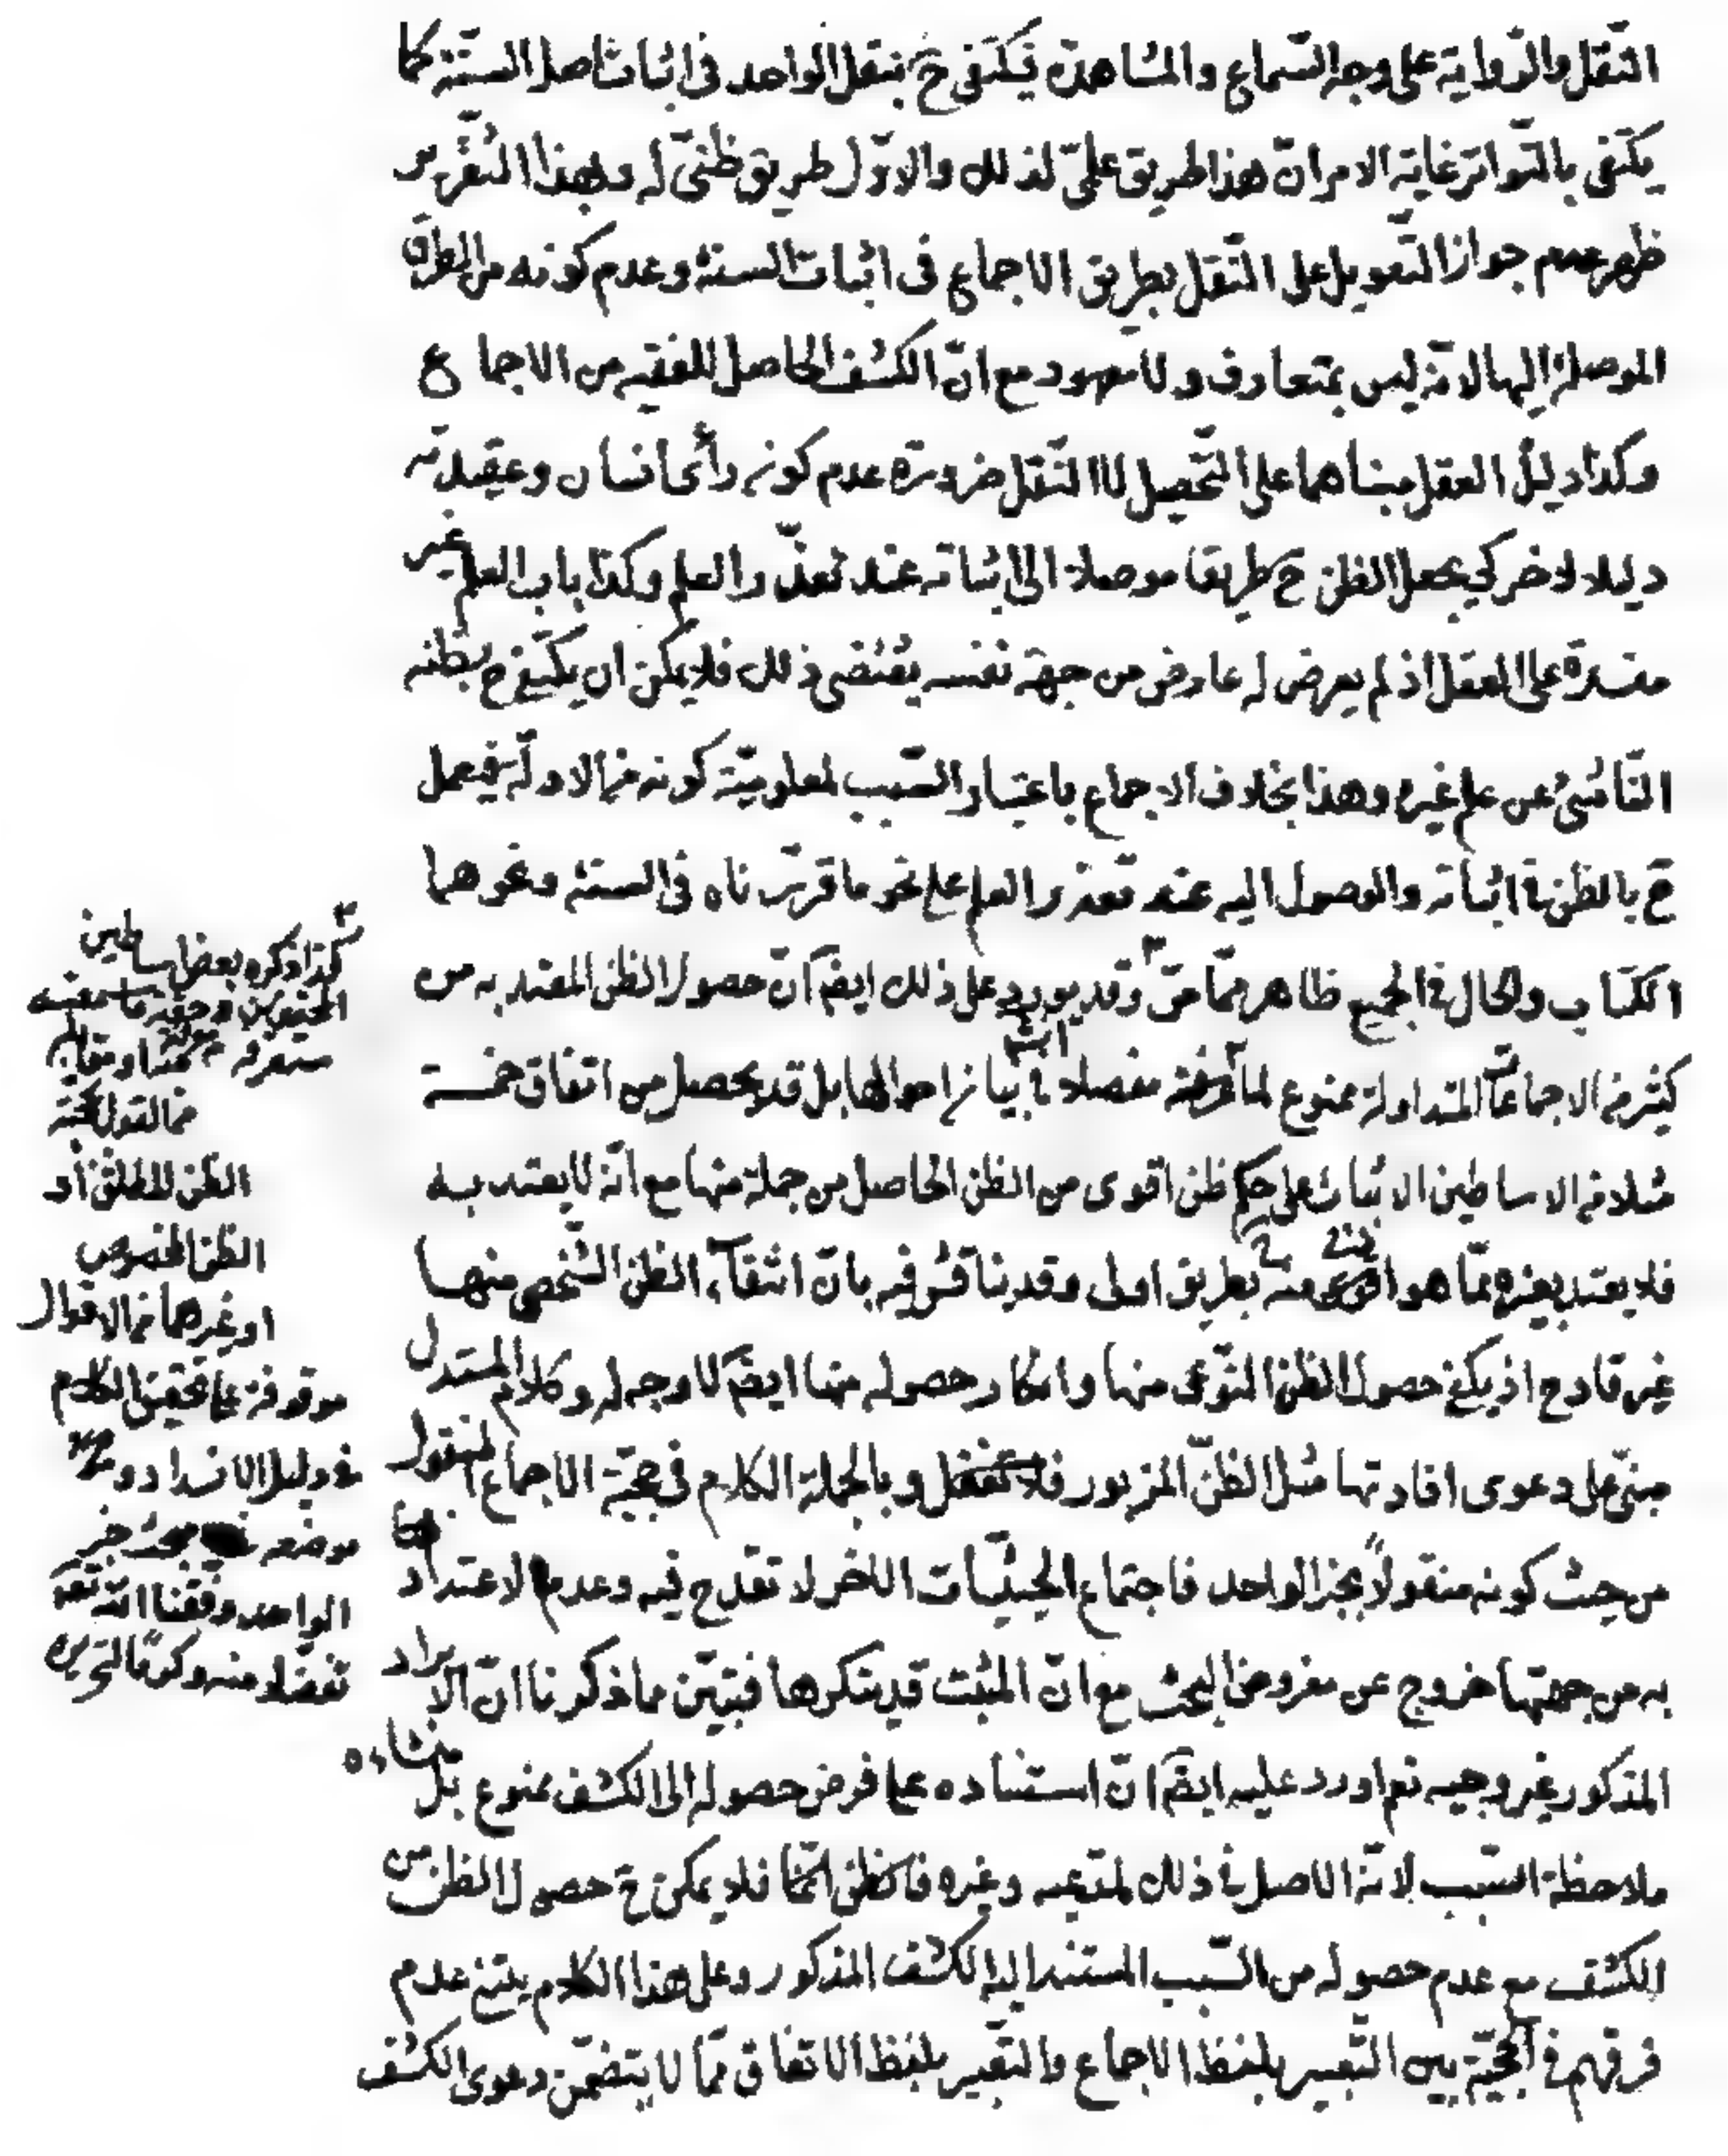 النّقل والرّواية على وجه السّماع والمشاهدة فيكتفى ح بنقل الواحد فى اثبات اصل السنّة كما
يكتفى بالتّواتر غاية الامر انّ هذا طريق علمىّ لذلك والاوّل طريق ظنّىّ له وبهذا التّقرير
ظهر عدم جواز التّعويل على النّقل بطريق الاجماع فى اثبات السنة وعدم كونه من الطرق
الموصلة اليها لانّه ليس بمتعارف ولا معهود مع انّ الكشف الحاصل للفقيه من الاجماع
وكذا دليل العقل مبناهما على التّحصيل لا النّقل ضرورة عدم كون رأى انسان وعقيدته
دليلا لاخر كى يجعل الظن ح طريقا موصلا الى اثباته عند تعذّر العلم وكذا باب العلم غير
منسدة على العقل اذ لم يعرض له عارض من جهة نفسه يقتضى ذلك فلا يمكن ان يكتفى ح بظنه
النّاشئ عن علم غيره وهذا بخلاف الاجماع باعتبار السّبب لمعلوميّة كونه من الادلّة فيعمل
ح بالظن فى اثباته والوصول اليه عند تعذر العلم على نحو ما قرّرناه فى السنة ونحوهما
الكتاب والحال فى الجميع ظاهر ممّا مرّ وقد يورد على ذلك ايضا انّ حصول الظن المعتد به من
كثير من الاجماعات المتداولة ممنوع لما عرفته مفصلا فى بيان احوالها بل قد يحصل من اتفاق خمسة
مثلا من الاساطين الاثبات على حكم ظن اقوى من الظن الحاصل من جملة منها مع انّه لا يعتد به
فلا يعتد بغيره ممّا هو اقوى منه بطريق اولى وقد يناقش فيه بانّ انتفاء الظن الشّخصى منها
غير قادح اذ يكفى حصول الظن النّوعى منها وانكار حصوله منها ايضا لا وجه له وكلام المستدل
مبنىّ على دعوى افادتها مثل الظنّ المزبور فلا تغفل وبالجملة الكلام فى حجيّة الاجماع المنقول
من حيث كونه منقولاً بخبر الواحد فاجتماع الحيثيّات الاخر لا تقدح فيه وعدم الاعتداد
به من جهتها خروج عن مفروض البحث مع انّ المثبت قد ينكرها فتبيّن مما ذكرنا انّ الايراد
المذكور غير وجيه نعم اورد عليه ايضا انّ استناده على فرض حصوله الى الكشف ممنوع بل منشاءه
ملاحظة السّبب لانّه الاصل فى ذلك لمدّعيه وغيره فلا يمكن ح حصول الظن من
الكشف مع عدم حصوله من السّبب المستند اليه الكشف المذكور وعلى هذا الكلام يبتنى عدم
فرقهم فى الحجيّة بين التّعبير بلفظ الاجماع والتّعبير بلفظ الاتفاق ممّا لا يتضمّن دعوى الكشف
كذا ذكره بعض اساطين
المحققين
ستعرفه
من القول بحجية
الظن المطلق او
الظن المخصوص
او غيرها من الاقوال
موقوفة على تحقيق الكلام
فى دليل الانسداد و
موضعه مبحث خبر
الواحد وفّقنا الله تعالى
تفضّلا منه وكرمًا لتحريره